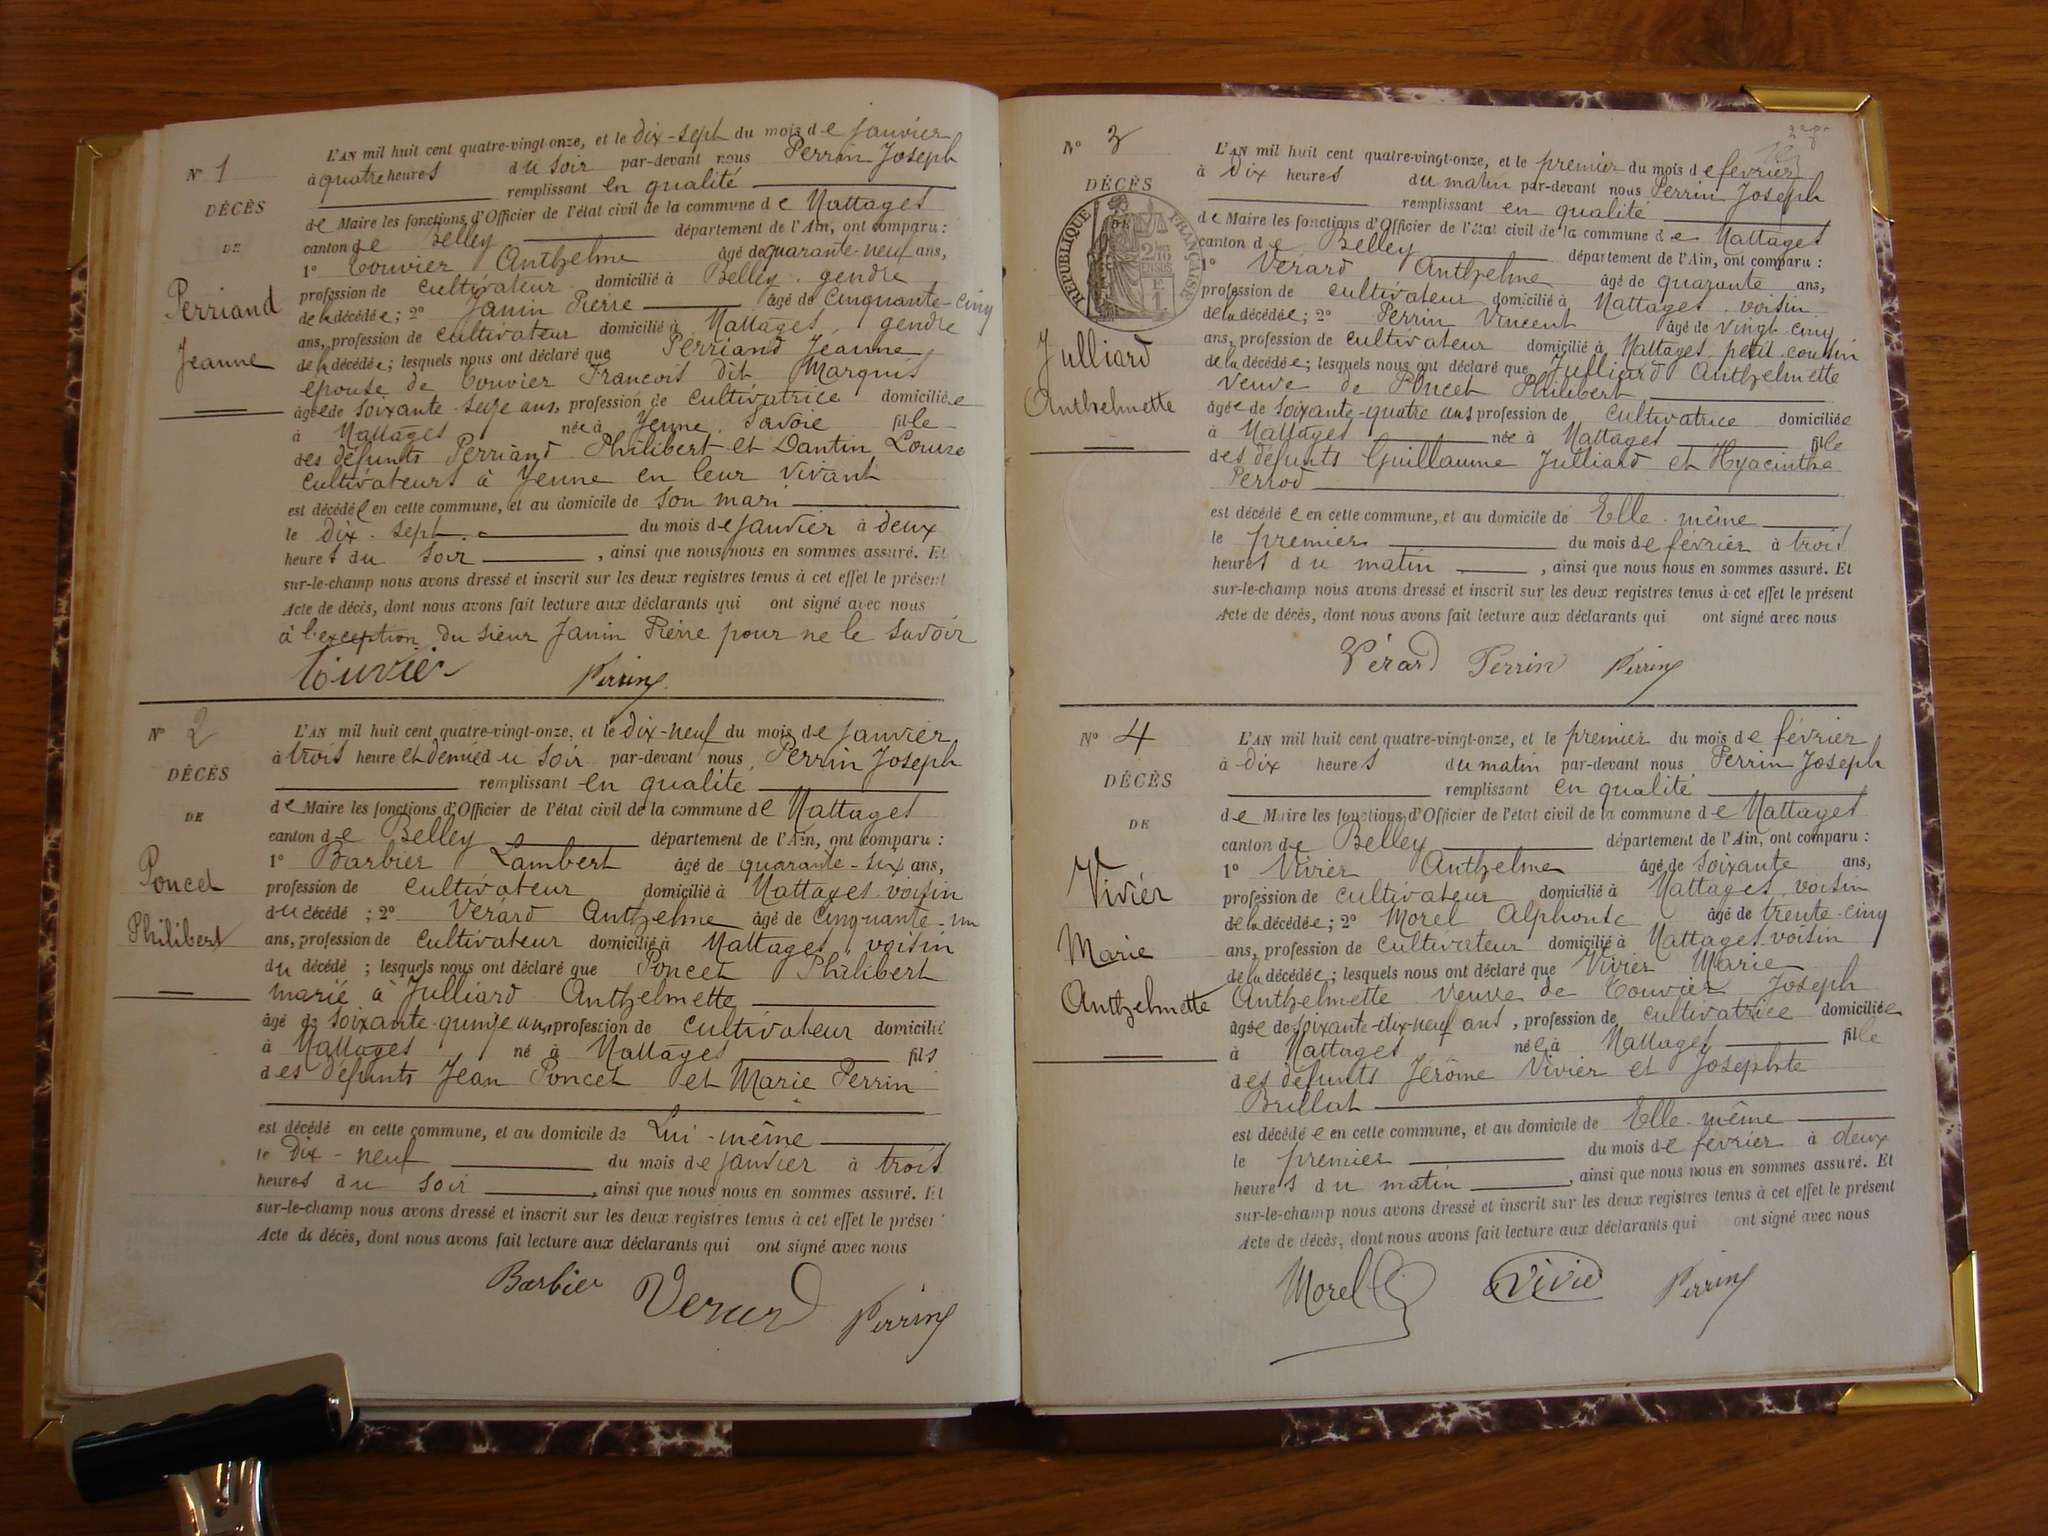 N° 1
DÉCÈS
DE
Perriand
Jeanne
L'AN mil huit cent quatre-vingt-onze, et le dix-sept du mois de janvier
à quatre heures du soir par-devant nous Perrin Joseph
remplissant en qualité
de Maire les fonctions d'Officier de l'état civil de la commune de Nattages
canton de Belley département de l'Ain, ont comparu :
1° Touvier Anthelme âgé de quarante-neuf ans,
profession de cultivateur domicilié à Belley, gendre
de la décédée ; 2° Janin Pierre âgé de cinquante-cinq
ans, profession de cultivateur domicilié à Nattages, gendre
de la décédée ; lesquels nous ont déclaré que Perriand Jeanne
épouse de Touvier François dit Marquis
âgée de soixante-seize ans, profession de cultivatrice domiciliée
à Nattages née à Yenne, Savoie fille
des défunts Perriand Philibert et Dantin Louise
cultivateurs à Yenne en leur vivant
est décédée en cette commune, et au domicile de son mari
le dix-sept du mois de janvier à deux
heures du soir, ainsi que nous nous en sommes assuré. Et
sur-le-champ nous avons dressé et inscrit sur les deux registres tenus à cet effet le présent
Acte de décès, dont nous avons fait lecture aux déclarants qui ont signé avec nous
à l'exception du sieur Janin Pierre pour ne le savoir
Touvier Perrin
N° 2
DÉCÈS
DE
Poncet
Philibert
L'AN mil huit cent quatre-vingt-onze, et le dix-neuf du mois de janvier
à trois heure et demie du soir par-devant nous Perrin Joseph
remplissant en qualité
de Maire les fonctions d'Officier de l'état civil de la commune de Nattages
canton de Belley département de l'Ain, ont comparu :
1° Barbier Lambert âgé de quarante-six ans,
profession de cultivateur domicilié à Nattages voisin
du décédé ; 2° Vérard Anthelme âgé de cinquante-un
ans, profession de cultivateur domicilié à Nattages, voisin
du décédé ; lesquels nous ont déclaré que Poncet Philibert
marié à Julliard Anthelmette
âgé de soixante-quinze ans, profession de cultivateur domicilié
à Nattages né à Nattages fils
des défunts Jean Poncet et Marie Perrin
est décédé en cette commune, et au domicile de Lui-même
le Dix-neuf du mois de janvier à trois
heures du soir, ainsi que nous nous en sommes assuré. Et
sur-le-champ nous avons dressé et inscrit sur les deux registres tenus à cet effet le présent
Acte de décès, dont nous avons fait lecture aux déclarants qui ont signé avec nous
Barbier Verard Perrin
N° 3
DÉCÈS
RÉPUBLIQUE FRANÇAISE
Julliard
Anthelmette
L'AN mil huit cent quatre-vingt-onze, et le premier du mois de février
à dix heures du matin par-devant nous Perrin Joseph
remplissant en qualité
de Maire les fonctions d'Officier de l'état civil de la commune de Nattages
canton de Belley département de l'Ain, ont comparu :
1° Vérard Anthelme âgé de quarante ans,
profession de cultivateur domicilié à Nattages voisin
de la décédée ; 2° Perrin Vincent âgé de vingt-cinq
ans, profession de cultivateur domicilié à Nattages petit cousin
de la décédée ; lesquels nous ont déclaré que Julliard Anthelmette
veuve de Poncet Philibert
âgée de soixante-quatre ans profession de cultivatrice domiciliée
à Nattages née à Nattages fille
des défunts Guillaume Julliard et Hyacinthe
Perrod
est décédée en cette commune, et au domicile de Elle-même
le premier du mois de février à trois
heures du matin, ainsi que nous nous en sommes assuré. Et
sur-le-champ nous avons dressé et inscrit sur les deux registres tenus à cet effet le présent
Acte de décès, dont nous avons fait lecture aux déclarants qui ont signé avec nous
Vérard Perrin Perrin
N° 4
DÉCÈS
DE
Vivier
Marie
Anthelmette
L'AN mil huit cent quatre-vingt-onze, et le premier du mois de février
à dix heures du matin par-devant nous Perrin Joseph
remplissant en qualité
de Maire les fonctions d'Officier de l'état civil de la commune de Nattages
canton de Belley département de l'Ain, ont comparu :
1° Vivier Anthelme âgé de soixante ans,
profession de cultivateur domicilié à Nattages voisin
de la décédée ; 2° Morel Alphonse âgé de trente-cinq
ans, profession de cultivateur domicilié à Nattages voisin
de la décédée ; lesquels nous ont déclaré que Vivier Marie
Anthelmette veuve de Touvier Joseph
âgée de soixante-dix-neuf ans, profession de cultivatrice domiciliée
à Nattages née à Nattages fille
des défunts Jérôme Vivier et Josephte
Brillat
est décédée en cette commune, et au domicile de Elle-même
le premier du mois de février à deux
heures du matin, ainsi que nous nous en sommes assuré. Et
sur-le-champ nous avons dressé et inscrit sur les deux registres tenus à cet effet le présent
Acte de décès, dont nous avons fait lecture aux déclarants qui ont signé avec nous
Morel Vivie Perrin